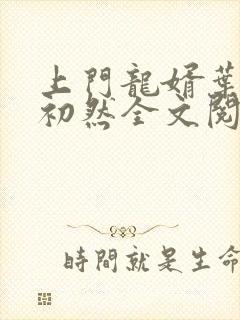 上門龍婿葉
初然全文閱
時間就是生命